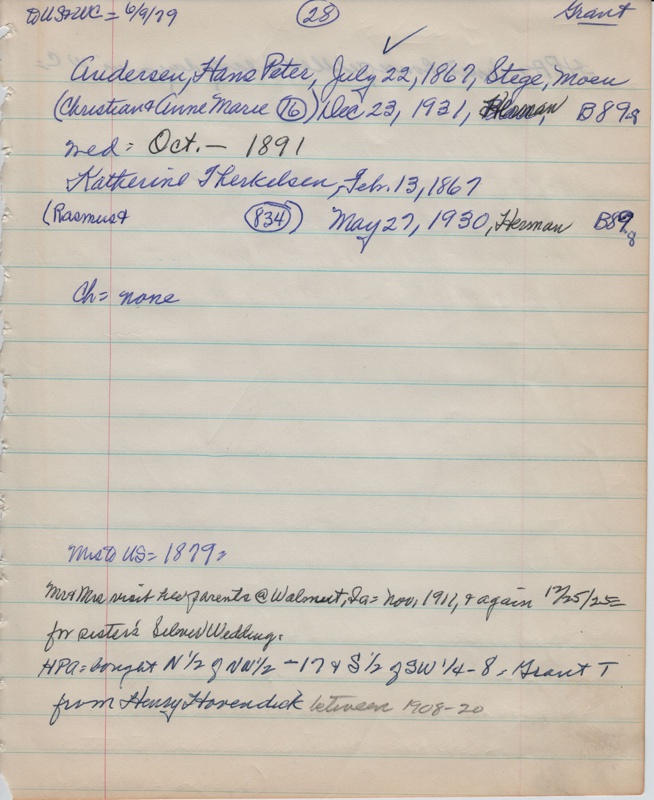 DUS+WC = 6/9/79 28 Grant
Andersen, Hans Peter, July 22, 1867, Stege, Moen
(Christian & Anne Marie 76) Dec 23, 1931, Herman B89-8
wed = Oct. - 1891
Katherine Therkelsen, Feb. 13, 1867
(Rasmus & 834) May 27, 1930, Herman B89-8
Ch = none
Mrs to US = 1879 =
Mr & Mrs visit her parents @ Walnut, Ia = Nov. 1911, & again 12/25/25 =
for sister's Silver Wedding.
HPA = bought N 1/2 of NW 1/4 - 17 & S 1/2 of SW 1/4 - 8 = Grant T
from Henry Hovendick between 1908-20